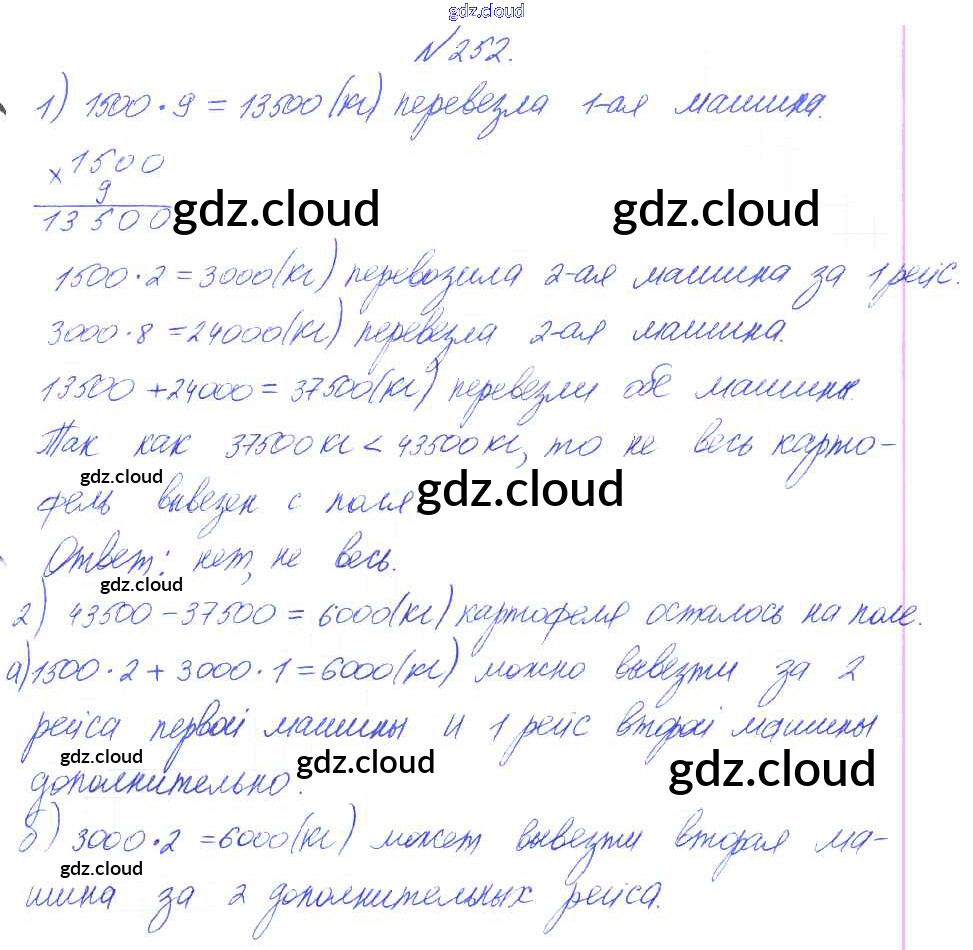 gdz.cloud
№252.
1) 1500·9 = 13500(кг) перевезла 1-ая машина.
×1500
9
13500 gdz.cloud gdz.cloud
1500·2 = 3000(кг) перевозила 2-ая машина за 1 рейс.
3000·8 = 24000(кг) перевезла 2-ая машина.
13500 + 24000 = 37500(кг) перевезли обе машины.
Так как 37500 кг < 43500 кг, то не весь карто-
gdz.cloud gdz.cloud
фель вывезен с поля
Ответ: нет, не весь.
gdz.cloud
2) 43500 – 37500 = 6000(кг) картофеля осталось на поле.
а) 1500·2 + 3000·1 = 6000(кг) можно вывезти за 2
рейса первой машины и 1 рейс второй машины
gdz.cloud gdz.cloud gdz.cloud
дополнительно.
б) 3000·2 = 6000(кг) может вывезти вторая ма-
gdz.cloud gdz.cloud
шина за 2 дополнительных рейса.